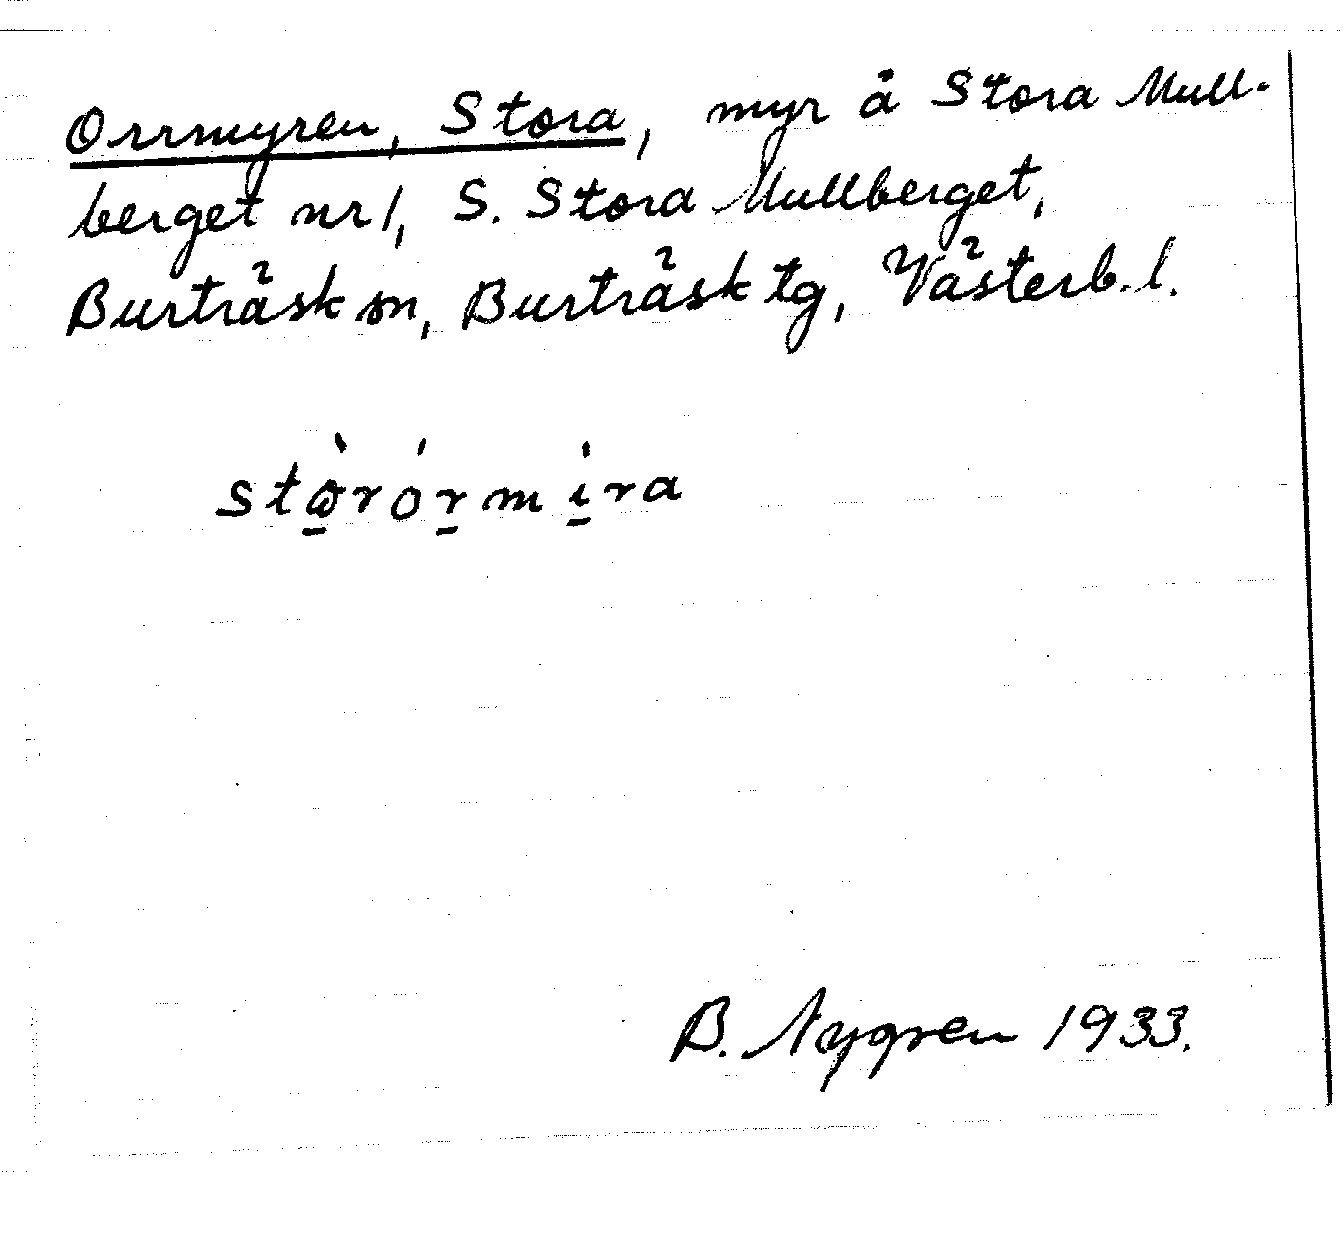 Orrmyren, Stora, myr å Stora Mull-
berget nr 1, S. Stora Mullberget,
Burträsk sn, Burträsk tg, Västerb. l.
B. Nygren 1933.